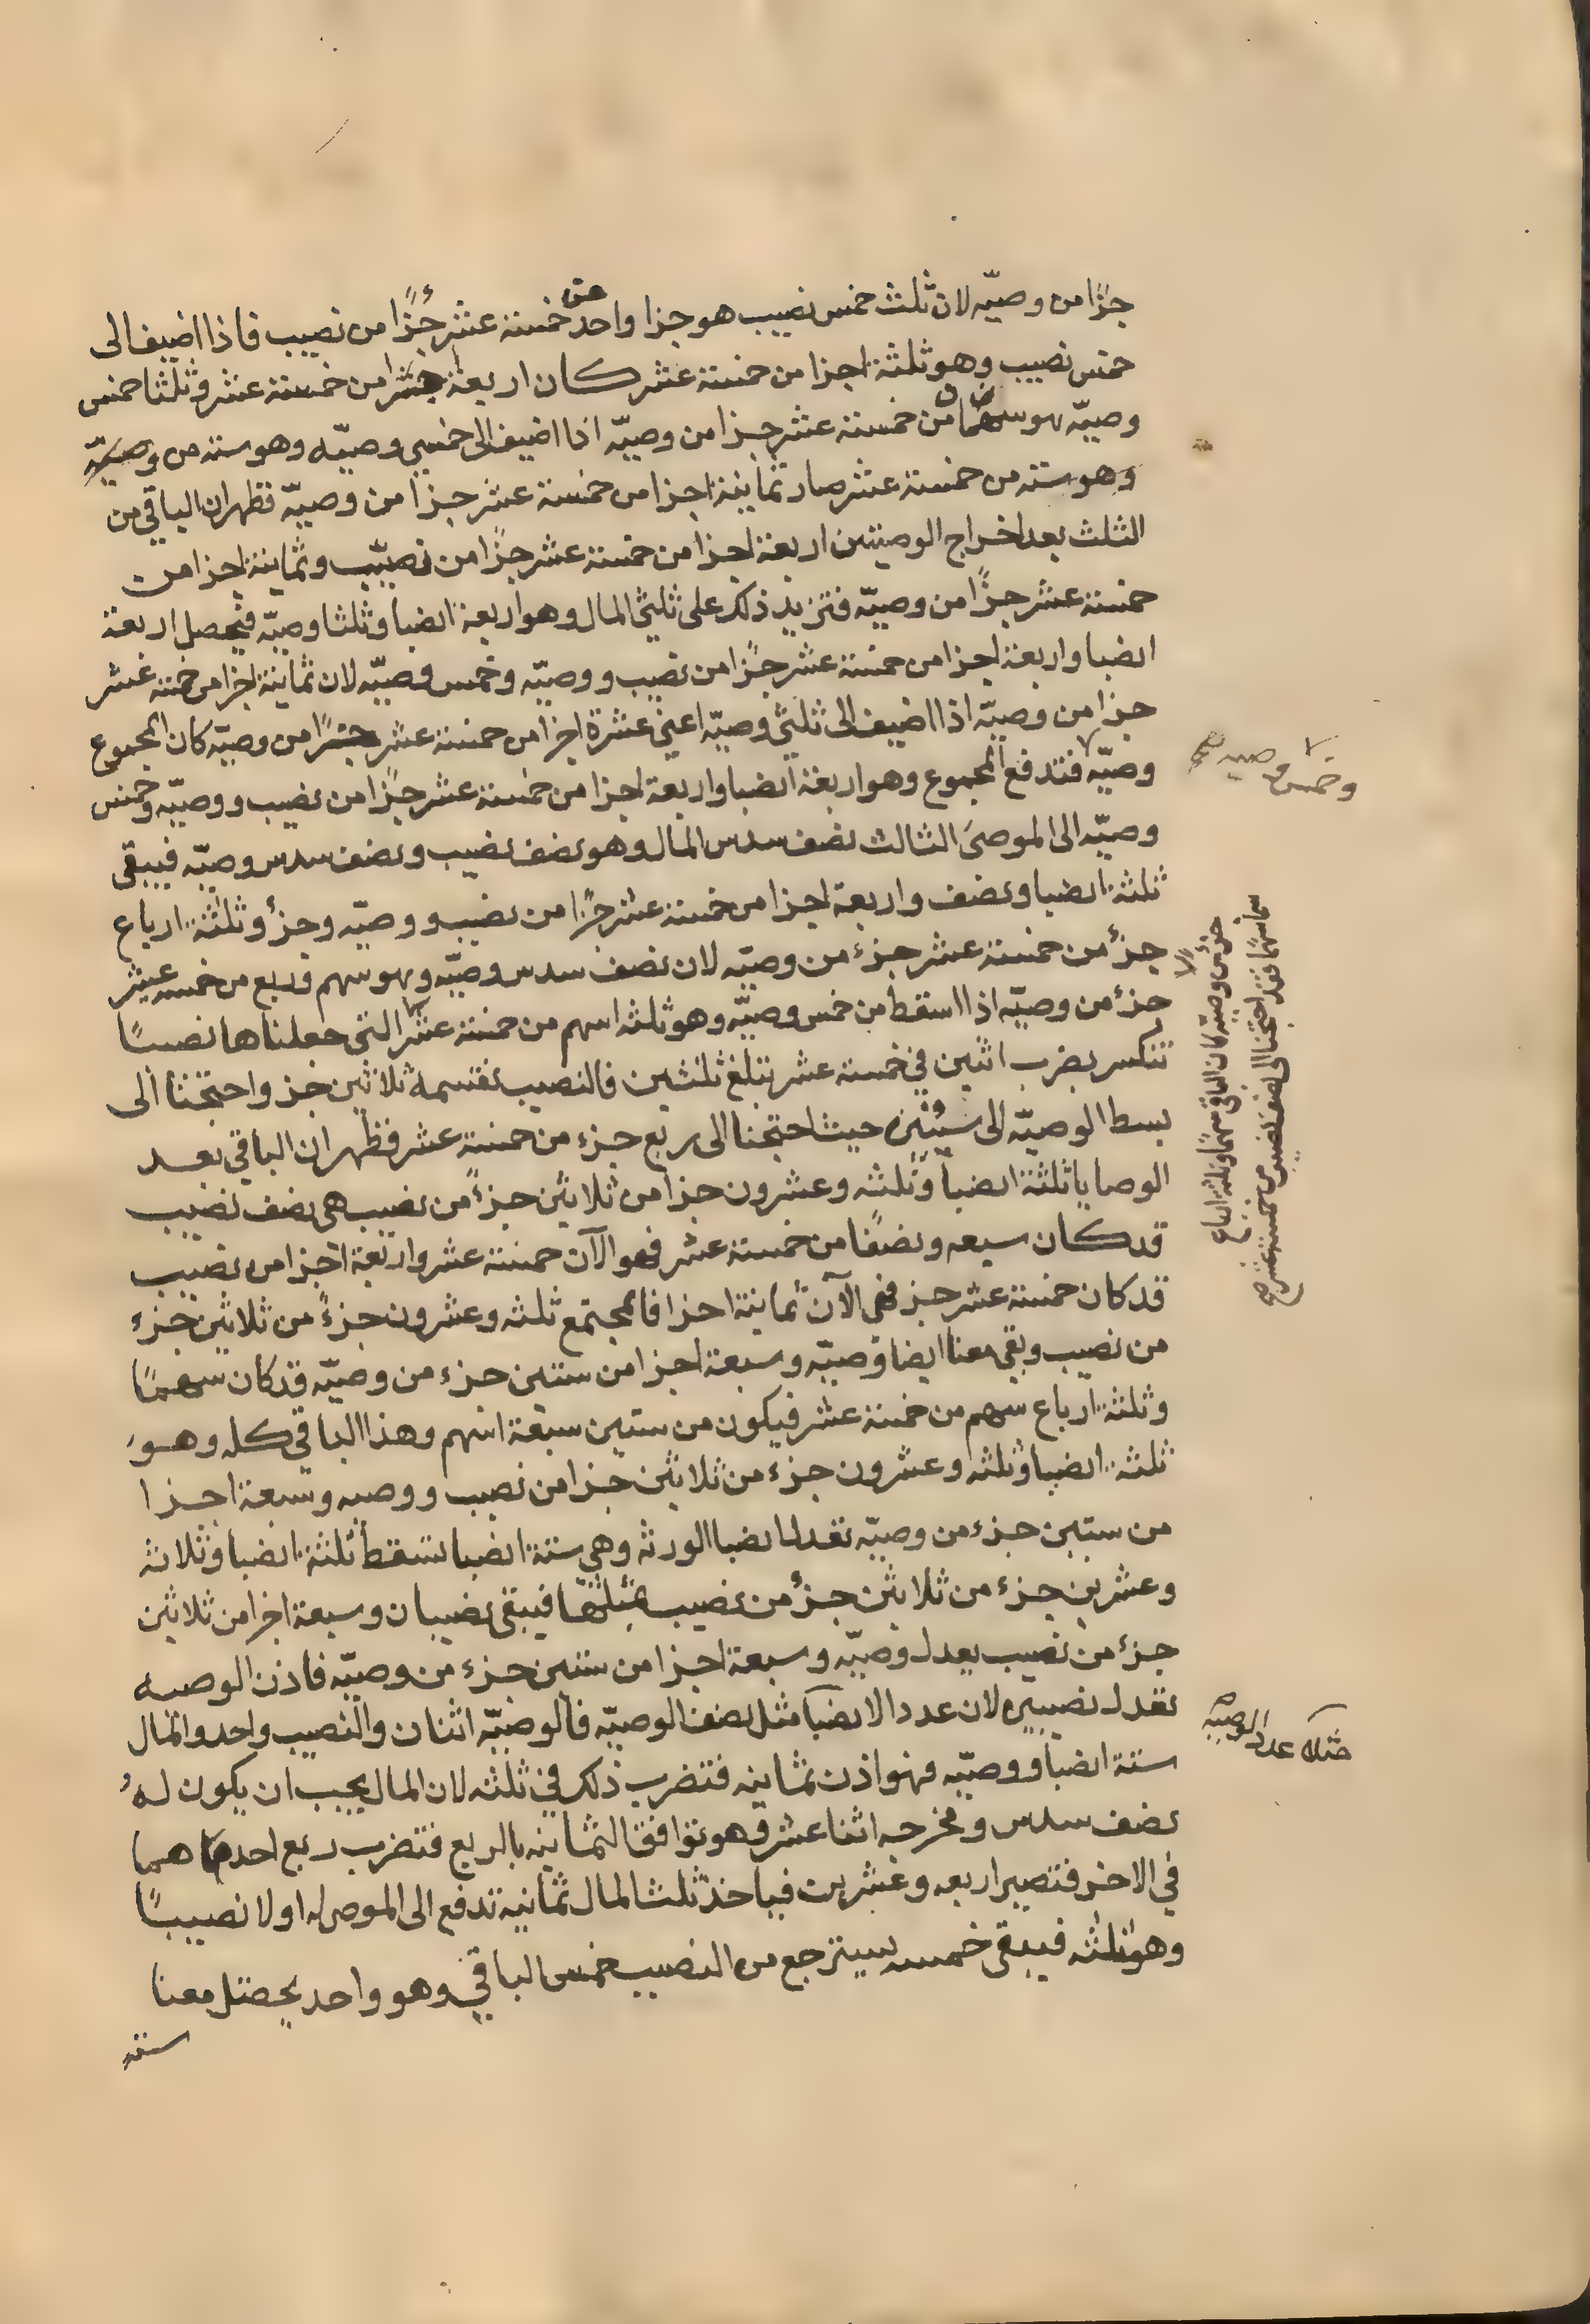 جزًا من وصيّه لان ثلث خمس نصيب هو جزا واحد من خمسة عشر جُزءًا من نصيب فاذا اضيف الى
خمس نصيب وهو ثلثة اجزا من خمسة عشر كان اربعة اجزا من خمسة عشر وثلثا خمس
وصيّه هو سهمان من خمسة عشر جزا من وصيّه اذا اضيف الى خمسي وصيّه وهو ستة من وصيّه
وهو ستة من خمسة عشر صار ثمانية اجزا من خمسة عشر جزا من وصيّه فظهر ان الباقي من
الثلث بعد اخراج الوصيتين اربعة اجزا من خمسة عشر جزًا من نصيب وثمانية اجزا من
خمسة عشر جزًا من وصيّه فتزيد ذلك على ثلثي المال وهو اربعة انصبا وثلثا وصيّه فيحصل اربعة
انصبا واربعة اجزا من خمسة عشر جزًا من نصيب ووصيّه وخمس وصيّه لان ثمانية اجزا من خمسة عشر
جزا من وصيّه اذا اضيف الى ثلثي وصيّه اعني عشرة اجزا من خمسة عشر جزًا من وصيّه كان المجموع
وصيّه فتدفع المجموع وهو اربعة انصبا واربعة اجزا من خمسة عشر جزًا من نصيب ووصيّه وخمس
وصيّه الى الموصى الثالث نصف سدس المال وهو نصف نصيب ونصف سدس وصيّه فيبقى
ثلثة انصبا ونصف واربعة اجزا من خمسة عشر جزًا من نصيب ووصيّه وجزٔ وثلثة ارباع
جزءٔ من خمسة عشر جزء من وصيّه لان نصف سدس وصيّه وهو سهم وربع من خمسة عشر
جزءٔ من وصيّه اذا اسقط من خمس وصيّه وهو ثلثه اسهم من خمسة عشر التي جعلناها نصيبًا
تنكسر بضرب اثنين في خمسة عشر تبلغ ثلثين فالنصيب نقسمه ثلاثين جز واحتجنا الى
بسط الوصيّه الى ستين حيث احتجنا الى ربع جزء من خمسة عشر فظهر ان الباقي بعد
الوصايا ثلثة انصبا وثلثه وعشرون جزا من ثلاثين جزءً من نصيب هي نصف نصيب
قد كان سبعه ونصفًا من خمسة عشر فهو الآن خمسة عشر واربعة اجزا من نصيب
قد كان خمسة عشر جز فهي الآن ثمانية اجزا فالمجتمع ثلثه وعشرون جزءً من ثلاثين جزء
من نصيب وبقي معنا ايضا وصيّه وسبعة اجزا من ستين جزء من وصيّه قد كان سهمًا
وثلثة ارباع سهم من خمسة عشر فيكون من ستين سبعة اسهم وهذا الباقي كله وهو
ثلثة انصبا وثلثه وعشرون جزء من ثلاثين جزا من نصيب ووصيه وسبعة اجزا
من ستين جزء من وصيّه تعدل انصبا الورثه وهي ستة انصبا تسقط ثلثة انصبا وثلاثه
وعشرين جزء من ثلاثين جزءٔ من نصيب بمثلها فيبقى نصيبان وسبعة اجزا من ثلاثين
جزء من نصيب يعدل وصيّه وسبعة اجزا من ستين جزء من وصيّه فاذن الوصيه
تعدل نصيبين لان عدد الانصبا مثل نصف الوصيّه فالوصيّه اثنان والنصيب واحد والمال
ستة انصبا ووصيّه فهو اذن ثمانيه فتضرب ذلك في ثلثه لان المال يجب ان يكون لهُ
نصف سدس ومخرجه اثنا عشر وهو توافق الثمانيه بالربع فتضرب ربع احدهما
في الاخر فتصير اربعه وعشرين فياخذ ثلث المال ثمانية تدفع الى الموصى له اولا نصيبًا
وهو ثلثه فيبقى خمسه يسترجع من النصيب خمس الباقي وهو واحد يحصل معنا
سته
وخمس وصيه صح
جزءٔ من وصيّه كان الباقي سهمًا وثلثة ارباع
سهم فقد احتجنا الى نصف نصيب من خمسة عشر صح
مثلا عدد الوصيه